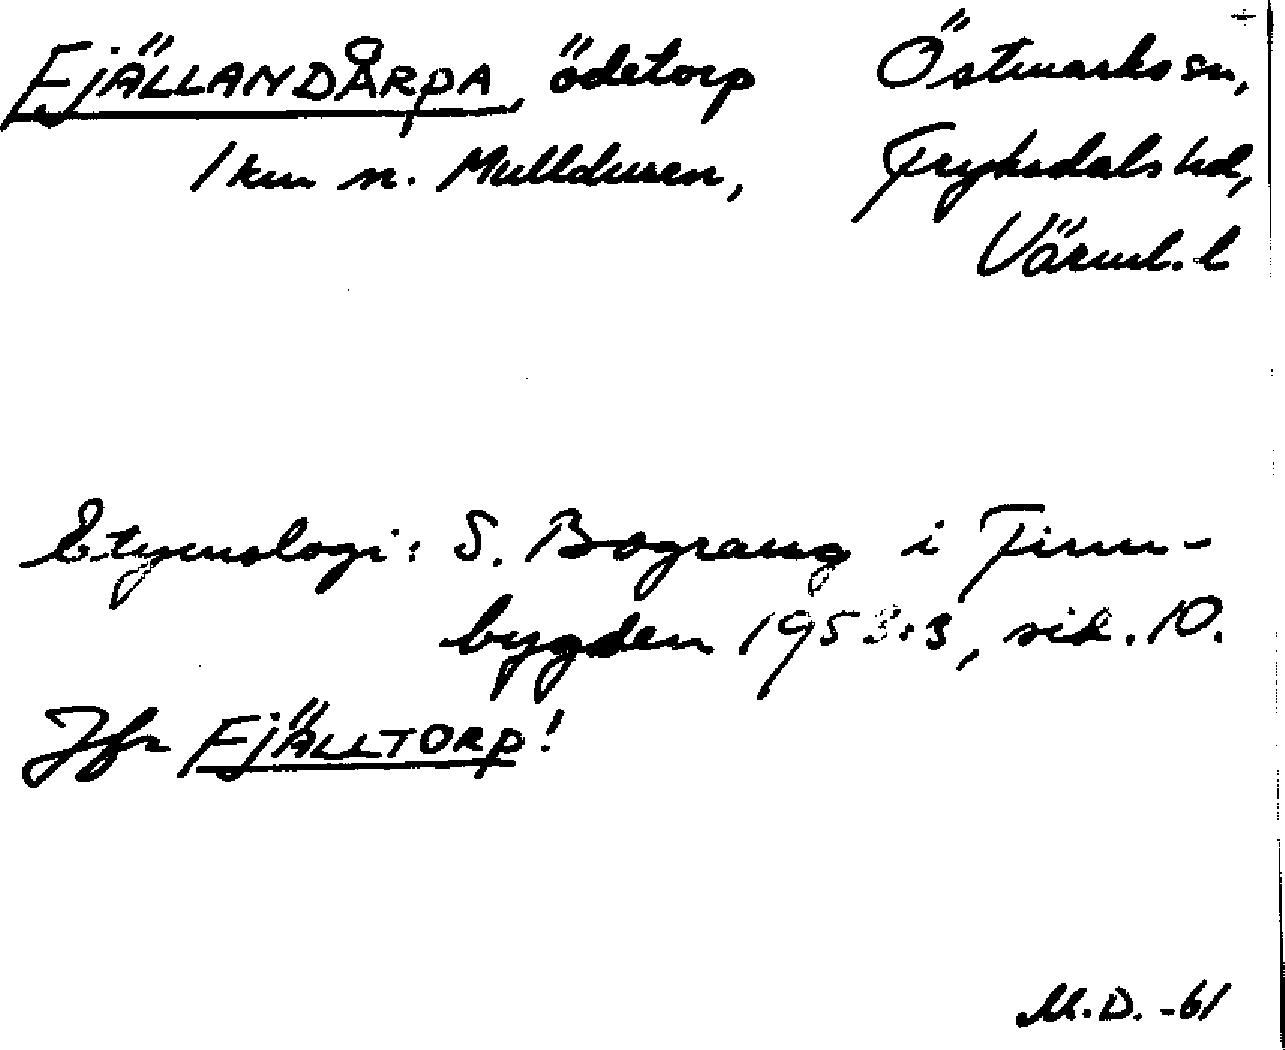 FJÄLLANDÅRPA, ödetorp Östmarks sn,
1 km n. Mullduren, Fryksdals hd,
Värml. l
Etymologi: S. Bograng i Finn-
bygden 1953:3, sid. 10.
Jfr FJÄLLTORP!
M.D. -61